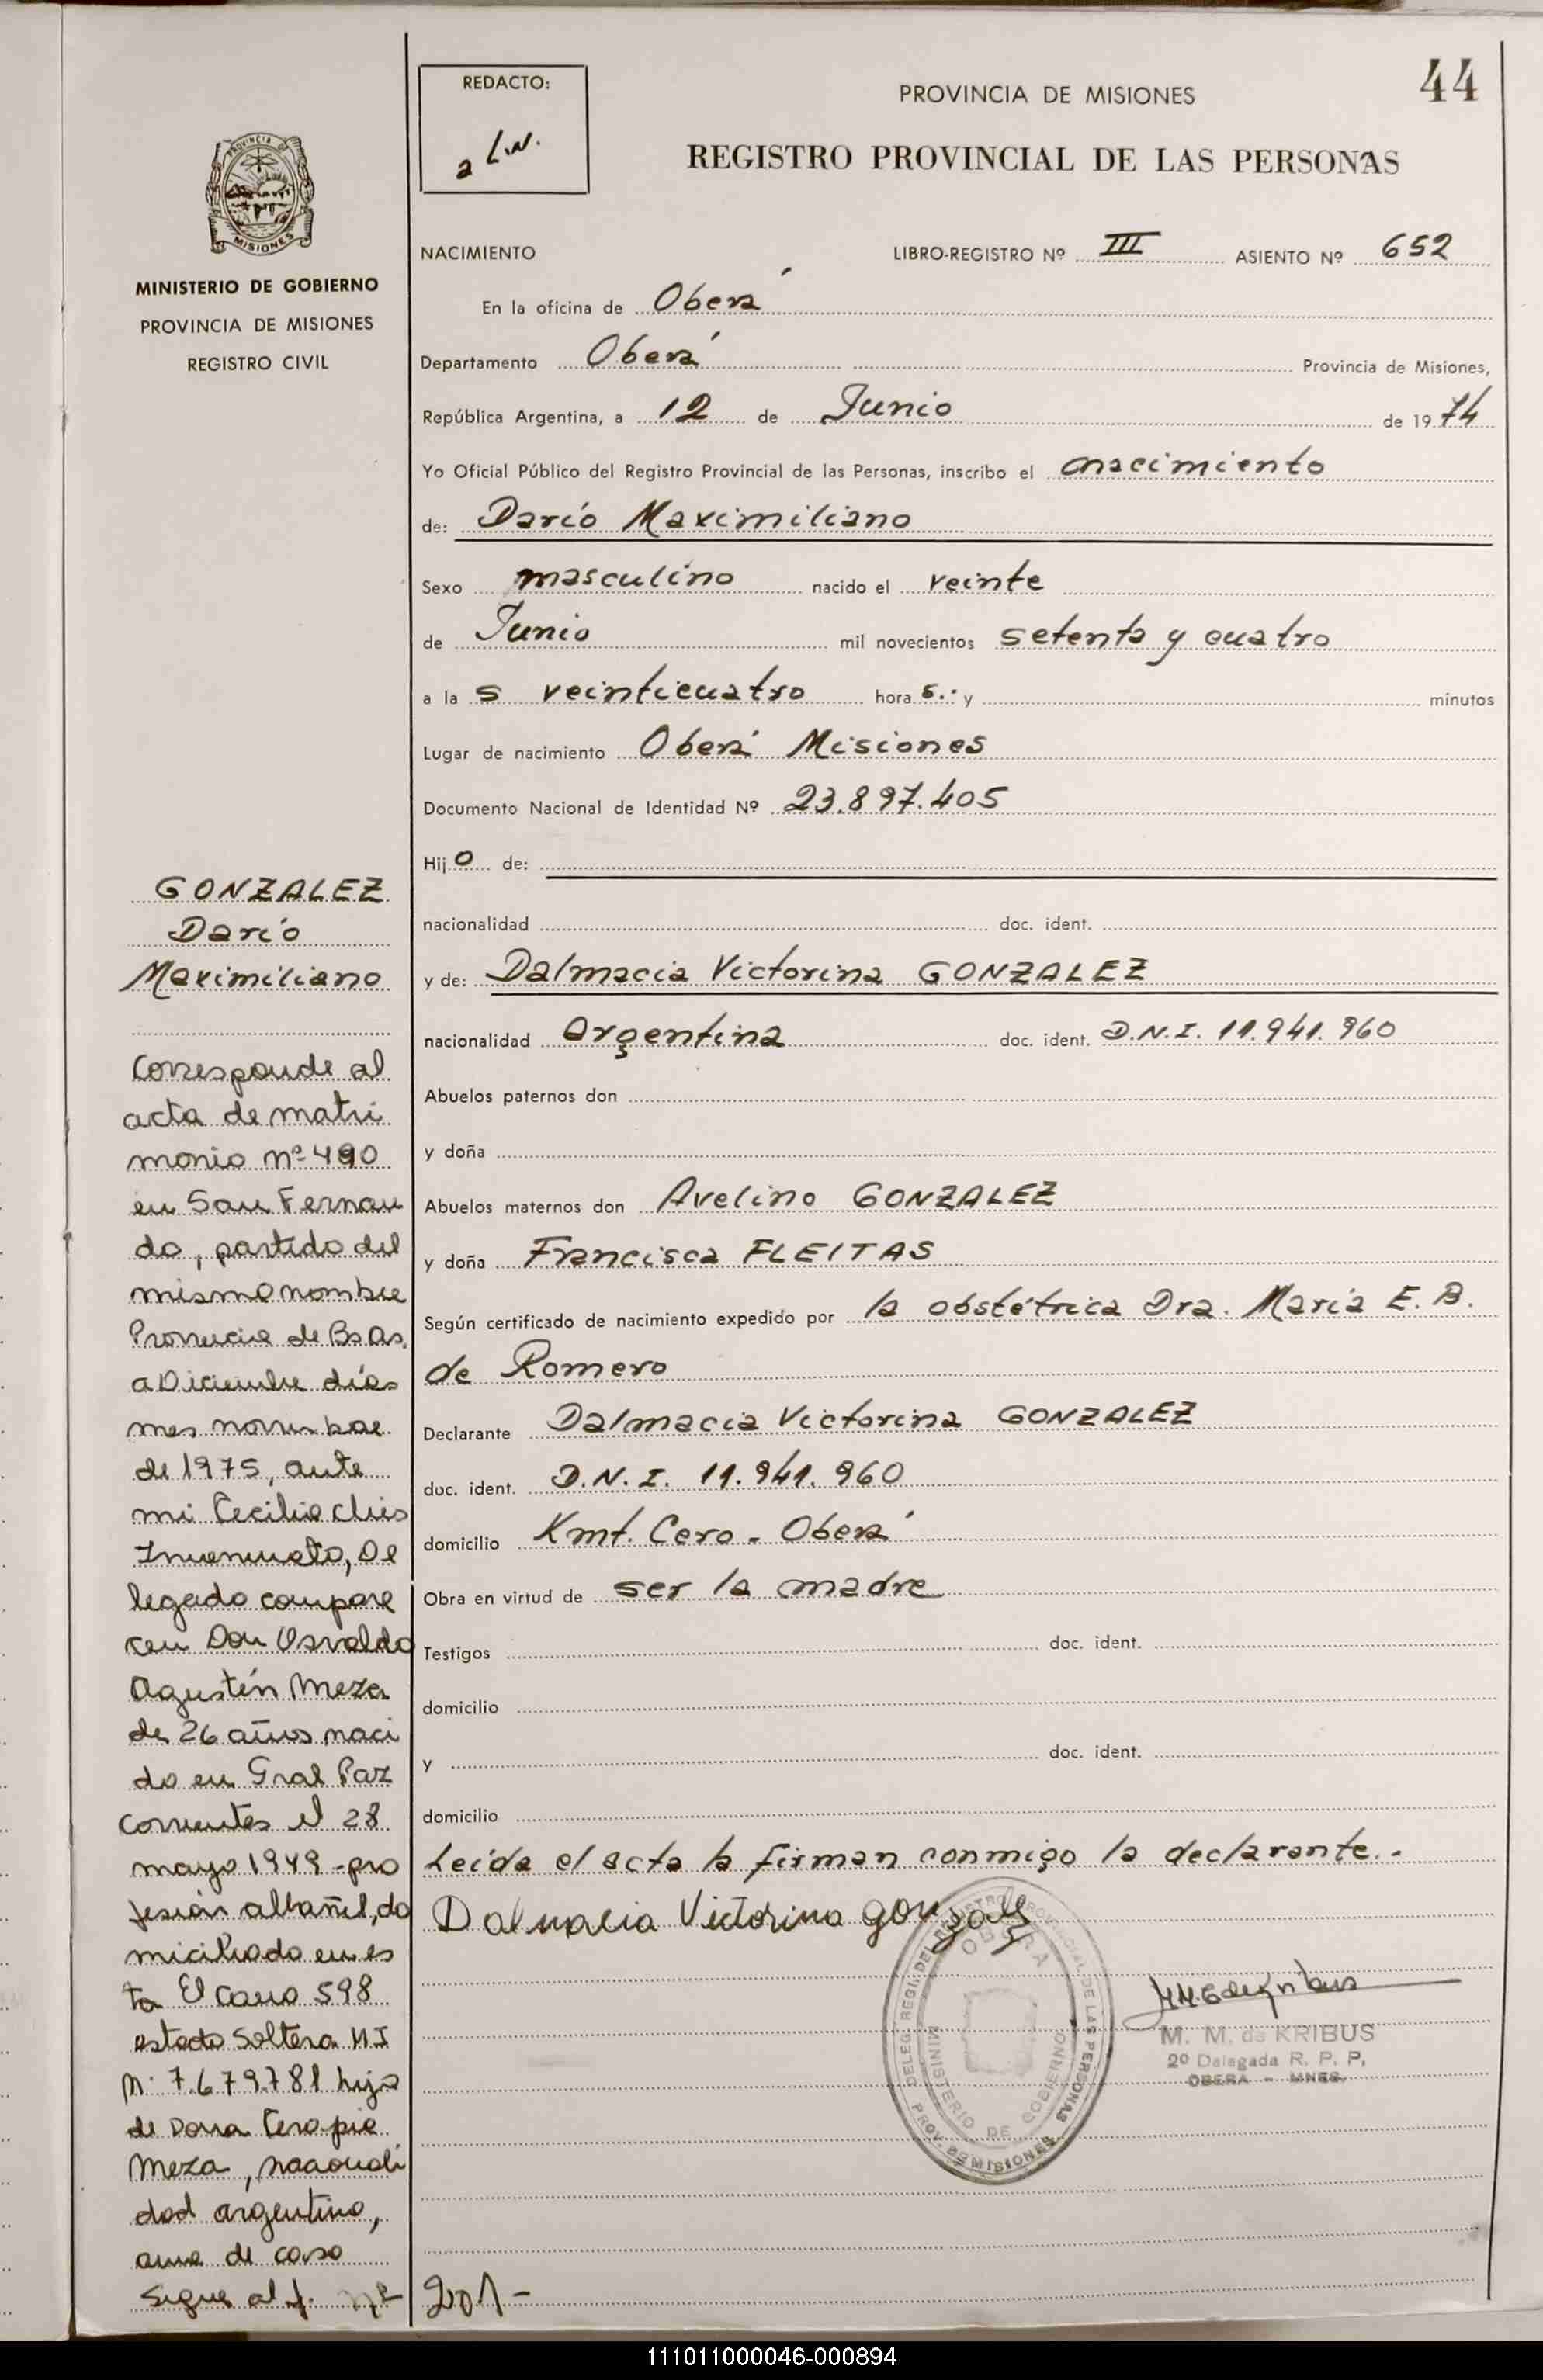 44
REDACTO:
PROVINCIA DE MISIONES
REGISTRO PROVINCIAL DE LAS PERSONAS
PROVINCIA DE
MISIONES
MINISTERIO DE GOBIERNO
PROVINCIA DE MISIONES
REGISTRO CIVIL
NACIMIENTO LIBRO-REGISTRO Nº III ASIENTO Nº 652
En la oficina de Oberá
Departamento Oberá Provincia de Misiones,
República Argentina, a 12 de Junio de 1974
Yo Oficial Público del Registro Provincial de las Personas, inscribo el nacimiento
de: Darío Maximiliano
Sexo masculino nacido el veinte
de Junio mil novecientos setenta y cuatro
a la s veinticuatro hora s.: y minutos
Lugar de nacimiento Oberá Misiones
Documento Nacional de Identidad Nº 23.897.405
Hijo de:
nacionalidad doc. ident.
y de: Dalmacia Victorina GONZALEZ
nacionalidad Argentina doc. ident. D.N.I. 11.941.960
Abuelos paternos don
y doña
Abuelos maternos don Avelino GONZALEZ
y doña Francisca FLEITAS
Según certificado de nacimiento expedido por la obstétrica Dra. María E. B.
de Romero
Declarante Dalmacia Victorina GONZALEZ
doc. ident. D.N.I. 11.941.960
domicilio Kmt. Cero. Oberá
Obra en virtud de ser la madre
Testigos doc. ident.
domicilio
y doc. ident.
domicilio
Leída el acta la firman conmigo la declarante..
Dalmacia Victorina gonzalez
M. M. de KRIBUS
2º Delegada R. P. P.
OBERA - MNES.
DELEG. REGI. DEL REGISTRO PROVINCIAL DE LAS PERSONAS
OBERA
MINISTERIO DE GOBIERNO
PROV. DE MISIONES
GONZALEZ
Darío
Maximiliano
Corresponde al
acta de matri
monio nº 490
en San Fernan
do, partido del
mismo nombre
Provincia de Bs As,
a Diciembre días
mes noviembre
de 1975, ante
mi Cecilia
De
legado compare
cen Don Osvaldo
Agustín Meza
de 26 años naci
do en Gral Paz
Corrientes el 28
mayo 1949 - pro
fesión albañil, do
miciliado en es
ta El Cano 598
estado soltero M I
Nº 7.679.781 hijo
de Dona Serapia
Meza, nacionali
dad argentina,
ama de casa
Sigue al f. nº 201-
111011000046-000894